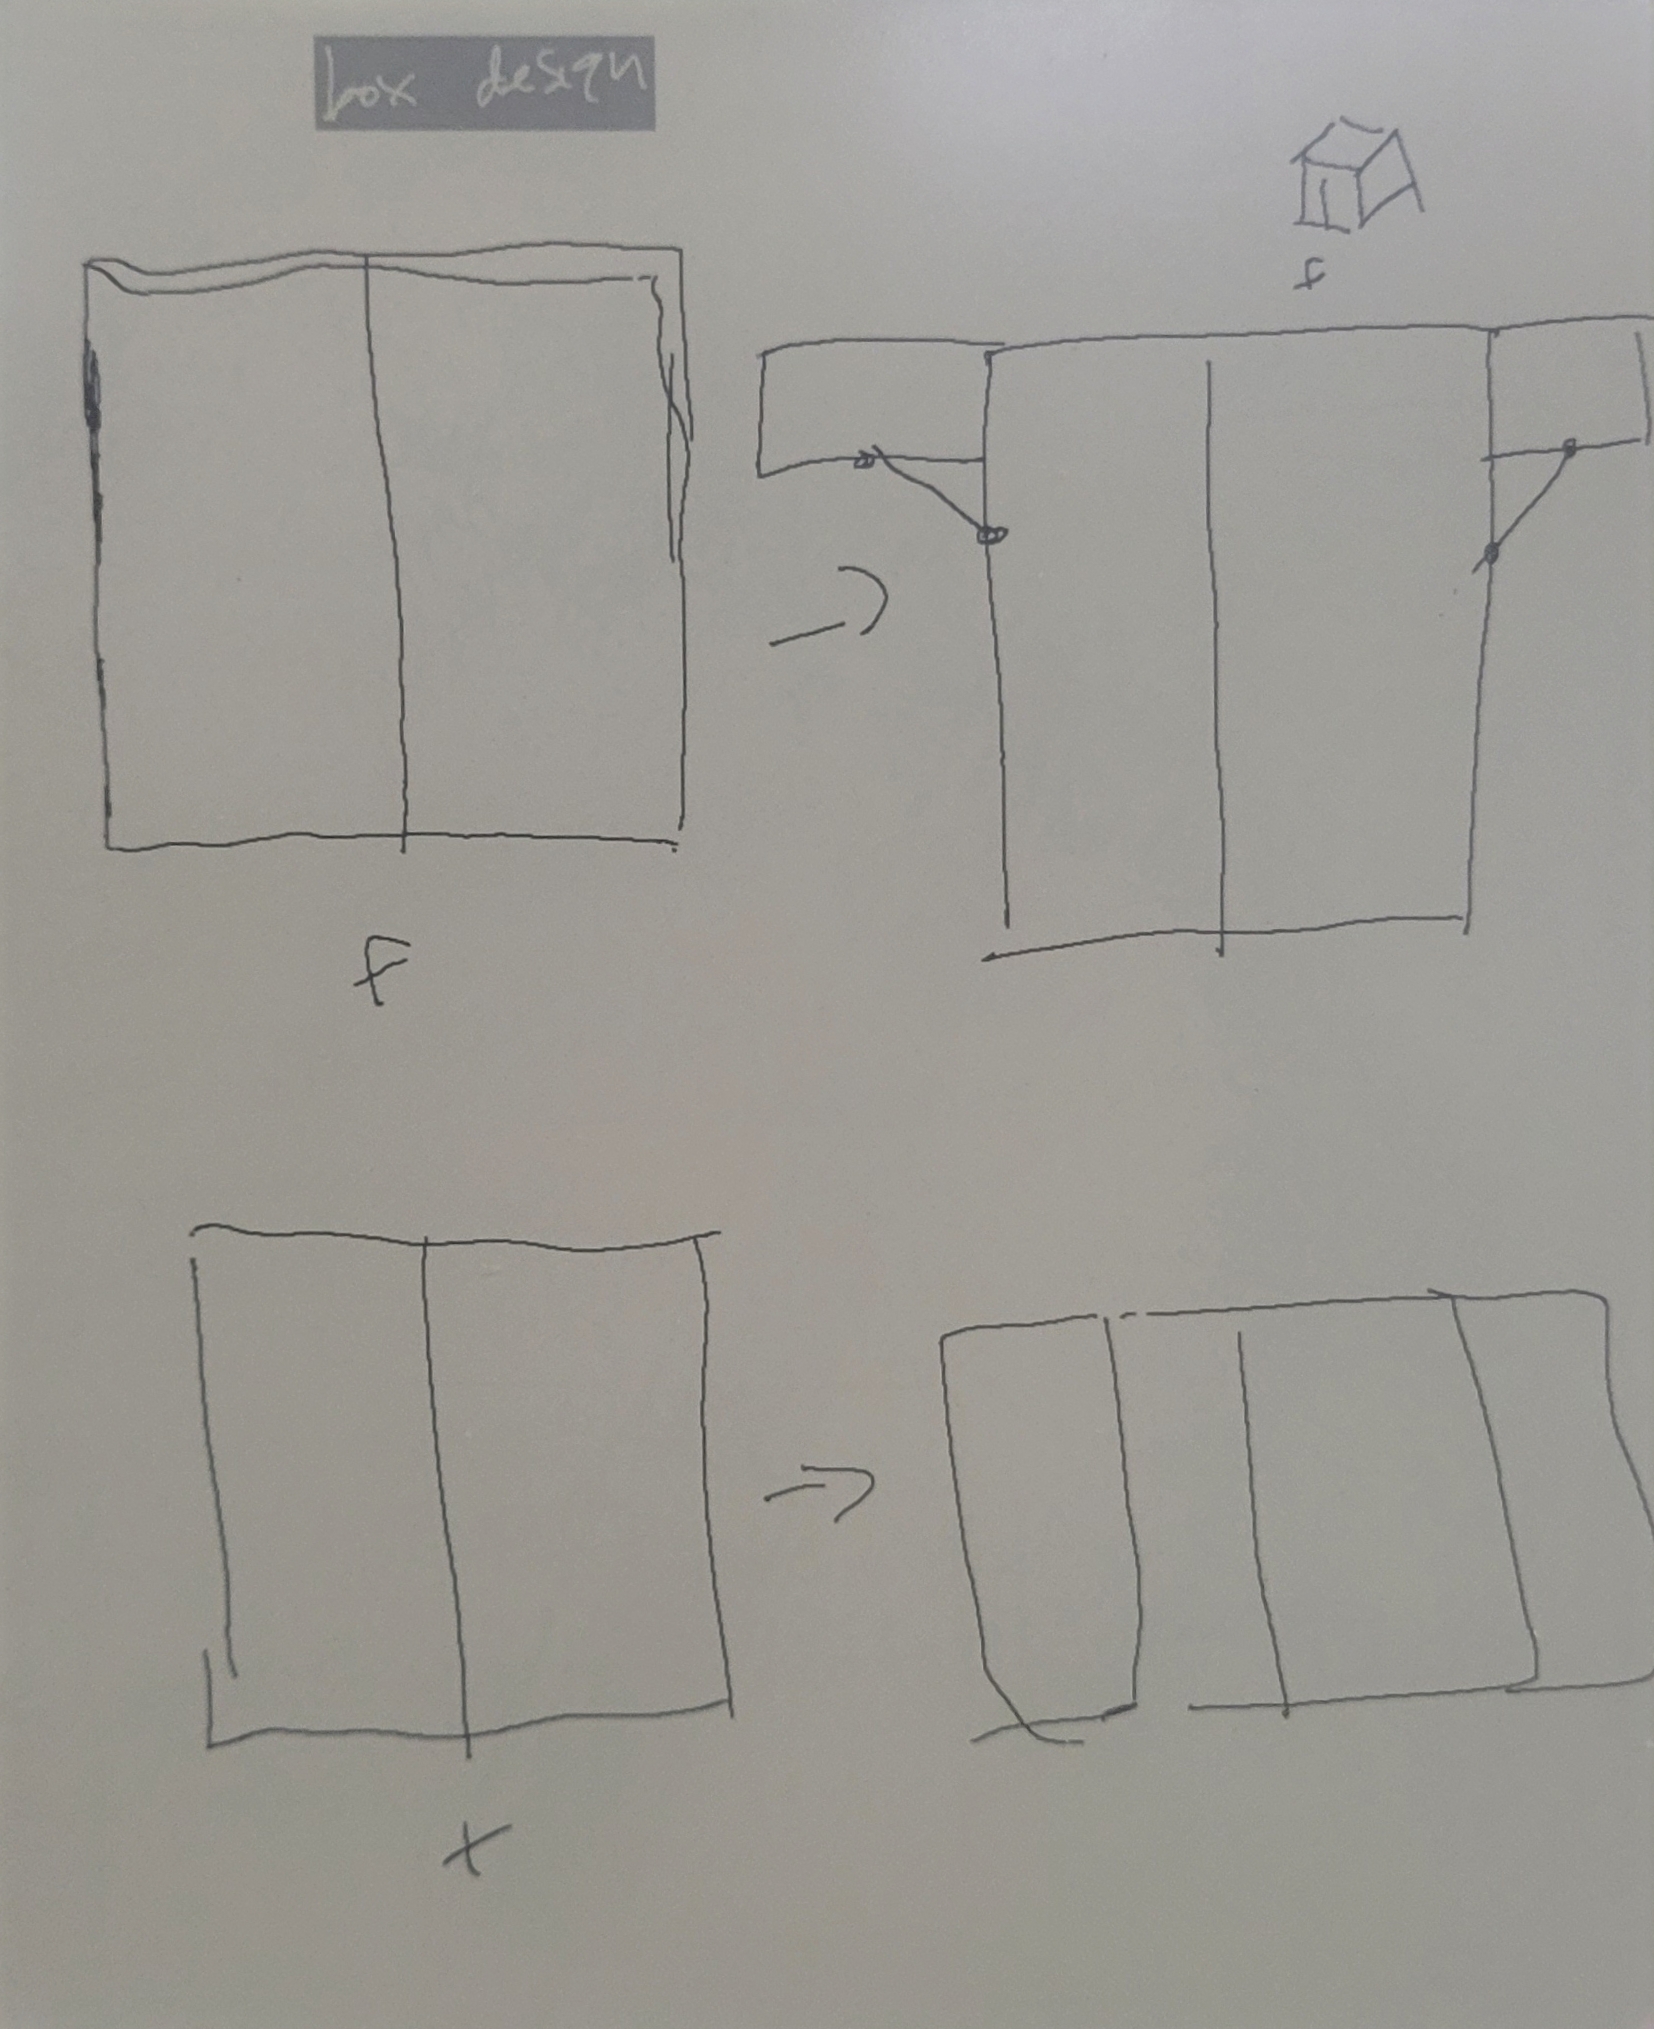 box design
f
F
t